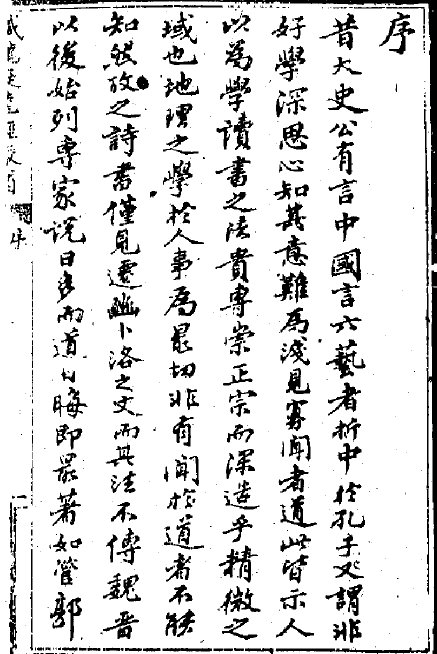 序
昔太史公有言中國言六藝者折中於孔子又謂非
好學深思心知其意難為淺見寡聞者道此皆示人
以為學讀書之法貴專崇正宗而深造乎精微之
域也地理之學於人事為最切非有聞於道者不能
知然攷之詩書僅見遷豳卜洛之文而其法不傳魏晋
以後始列專家說日多而道日晦即最著如管郭
序